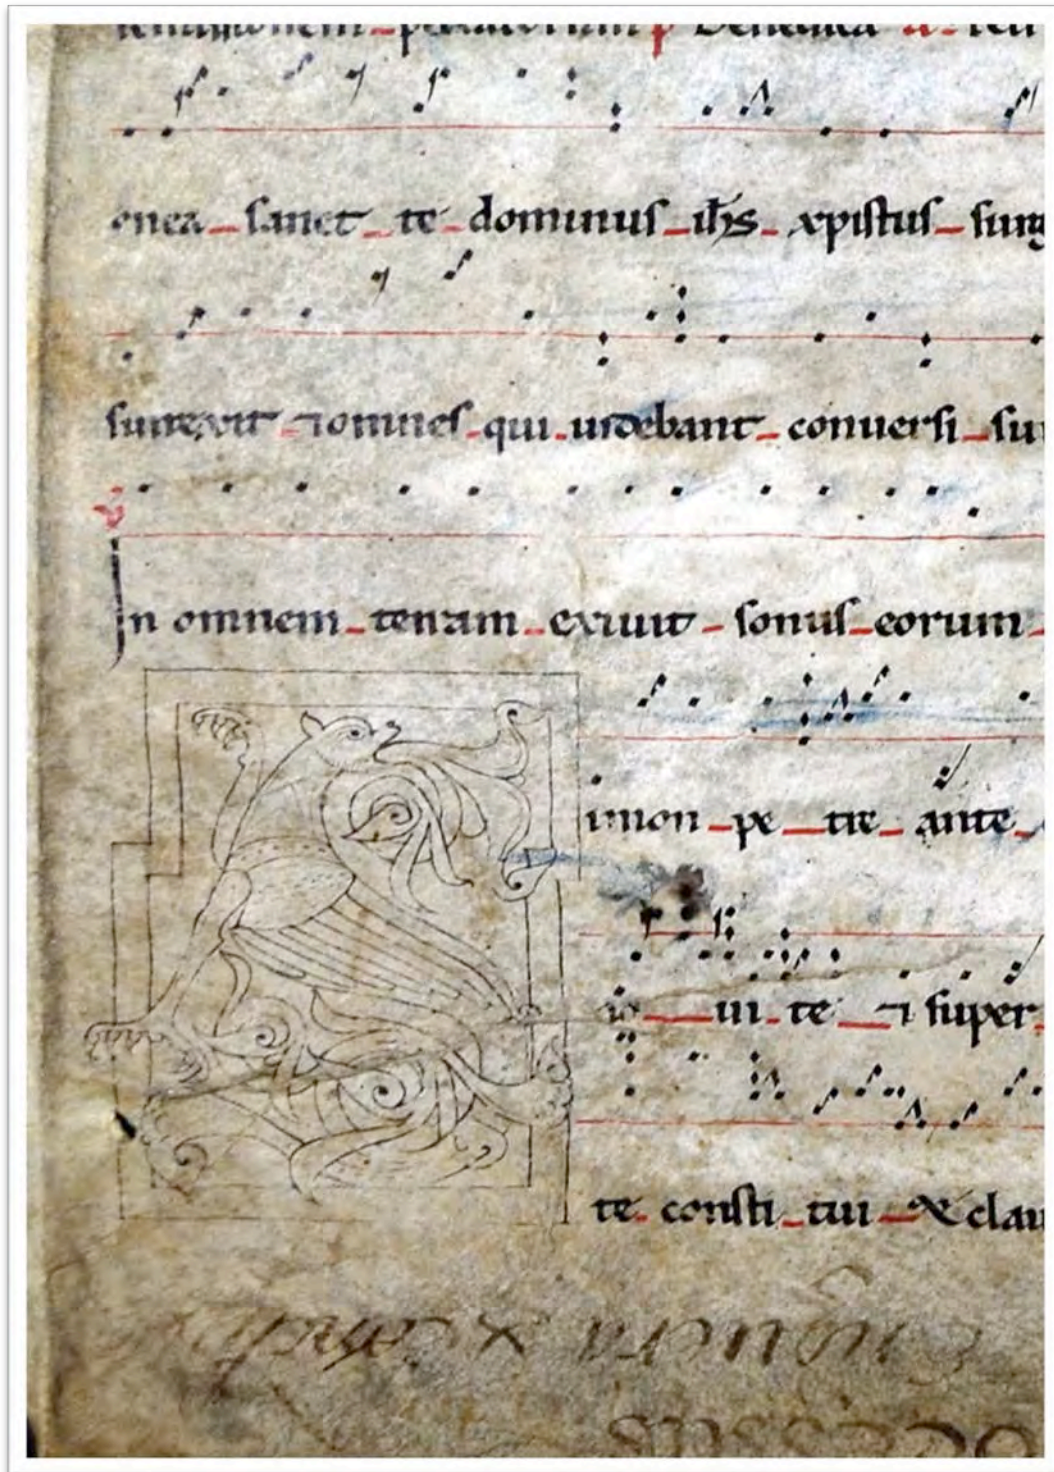 enea sanet te dominus ihs xpistus surg
surrexit ⁊ omnes qui uidebant conuersi su
In omnem terram exiuit sonus eorum
imon pe tre ante
io ui te ⁊ super
te consti tui & clau